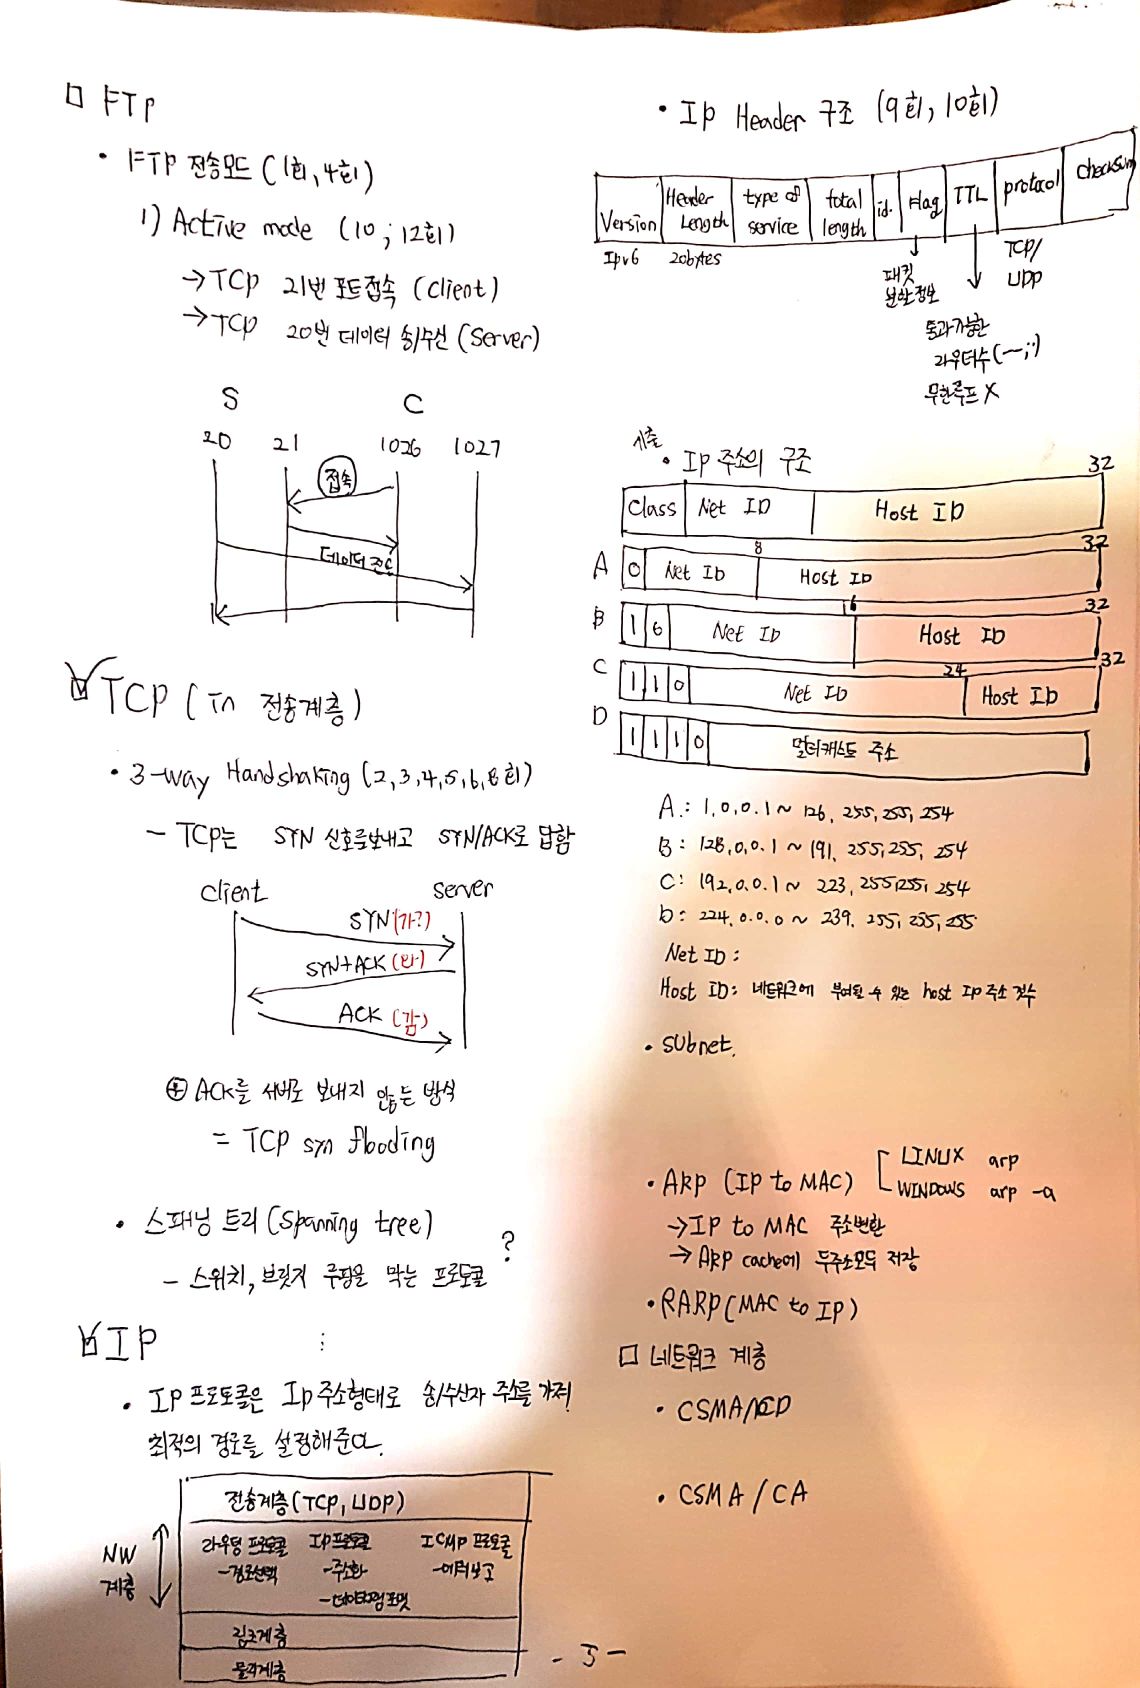 □ FTP
• FTP 전송모드 (1회, 4회)
1) Active mode (10, 12회)
→ TCP 21번 포트접속 (Client)
→ TCP 20번 데이터 송/수신 (Server)
S C
20 21 1026 1027
접속
데이터 전송
☑ TCP (in 전송계층)
• 3-way Handshaking (2,3,4,5,6,8회)
- TCP는 SYN 신호를보내고 SYN/ACK로 답함
client server
SYN (가?)
SYN+ACK (와)
ACK (감)
⊕ ACK를 서버로 보내지 않는 방식
= TCP syn flooding
• 스패닝 트리 (spanning tree)
- 스위치, 브릿지 루핑을 막는 프로토콜 ?
☑ IP
• IP 프로토콜은 IP 주소형태로 송/수신자 주소를 가져
최적의 경로를 설정해준다.
전송계층 (TCP, UDP)
NW 계층
라우팅 프로토콜 IP프로토콜 ICMP 프로토콜
-경로선택 -주소화 -에러보고
-데이터그램 포맷
링크계층
물리계층
• IP Header 구조 (9회, 10회)
Version Header Length type of service total length id. Flag TTL protocol checksum
Ipv6 20bytes TCP/ UDP
패킷
분할정보
통과가능한
라우터수
무한루프 X
기출
• IP 주소의 구조
32
Class Net ID Host ID
8 32
A 0 Net ID Host ID
16 32
B 1 0 Net ID Host ID
24 32
C 1 1 0 Net ID Host ID
D 1 1 1 0 멀티캐스트 주소
A : 1.0.0.1 ~ 126.255.255.254
B : 128.0.0.1 ~ 191.255.255.254
C : 192.0.0.1 ~ 223.255.255.254
D : 224.0.0.0 ~ 239.255.255.255
Net ID :
Host ID : 네트워크에 부여될 수 있는 host IP 주소 갯수
• subnet.
• ARP (IP to MAC) LINUX arp
WINDOWS arp -a
→ IP to MAC 주소변환
→ ARP cache에 두주소모두 저장
• RARP (MAC to IP)
□ 네트워크 계층
• CSMA/CD
• CSMA / CA
- 5 -